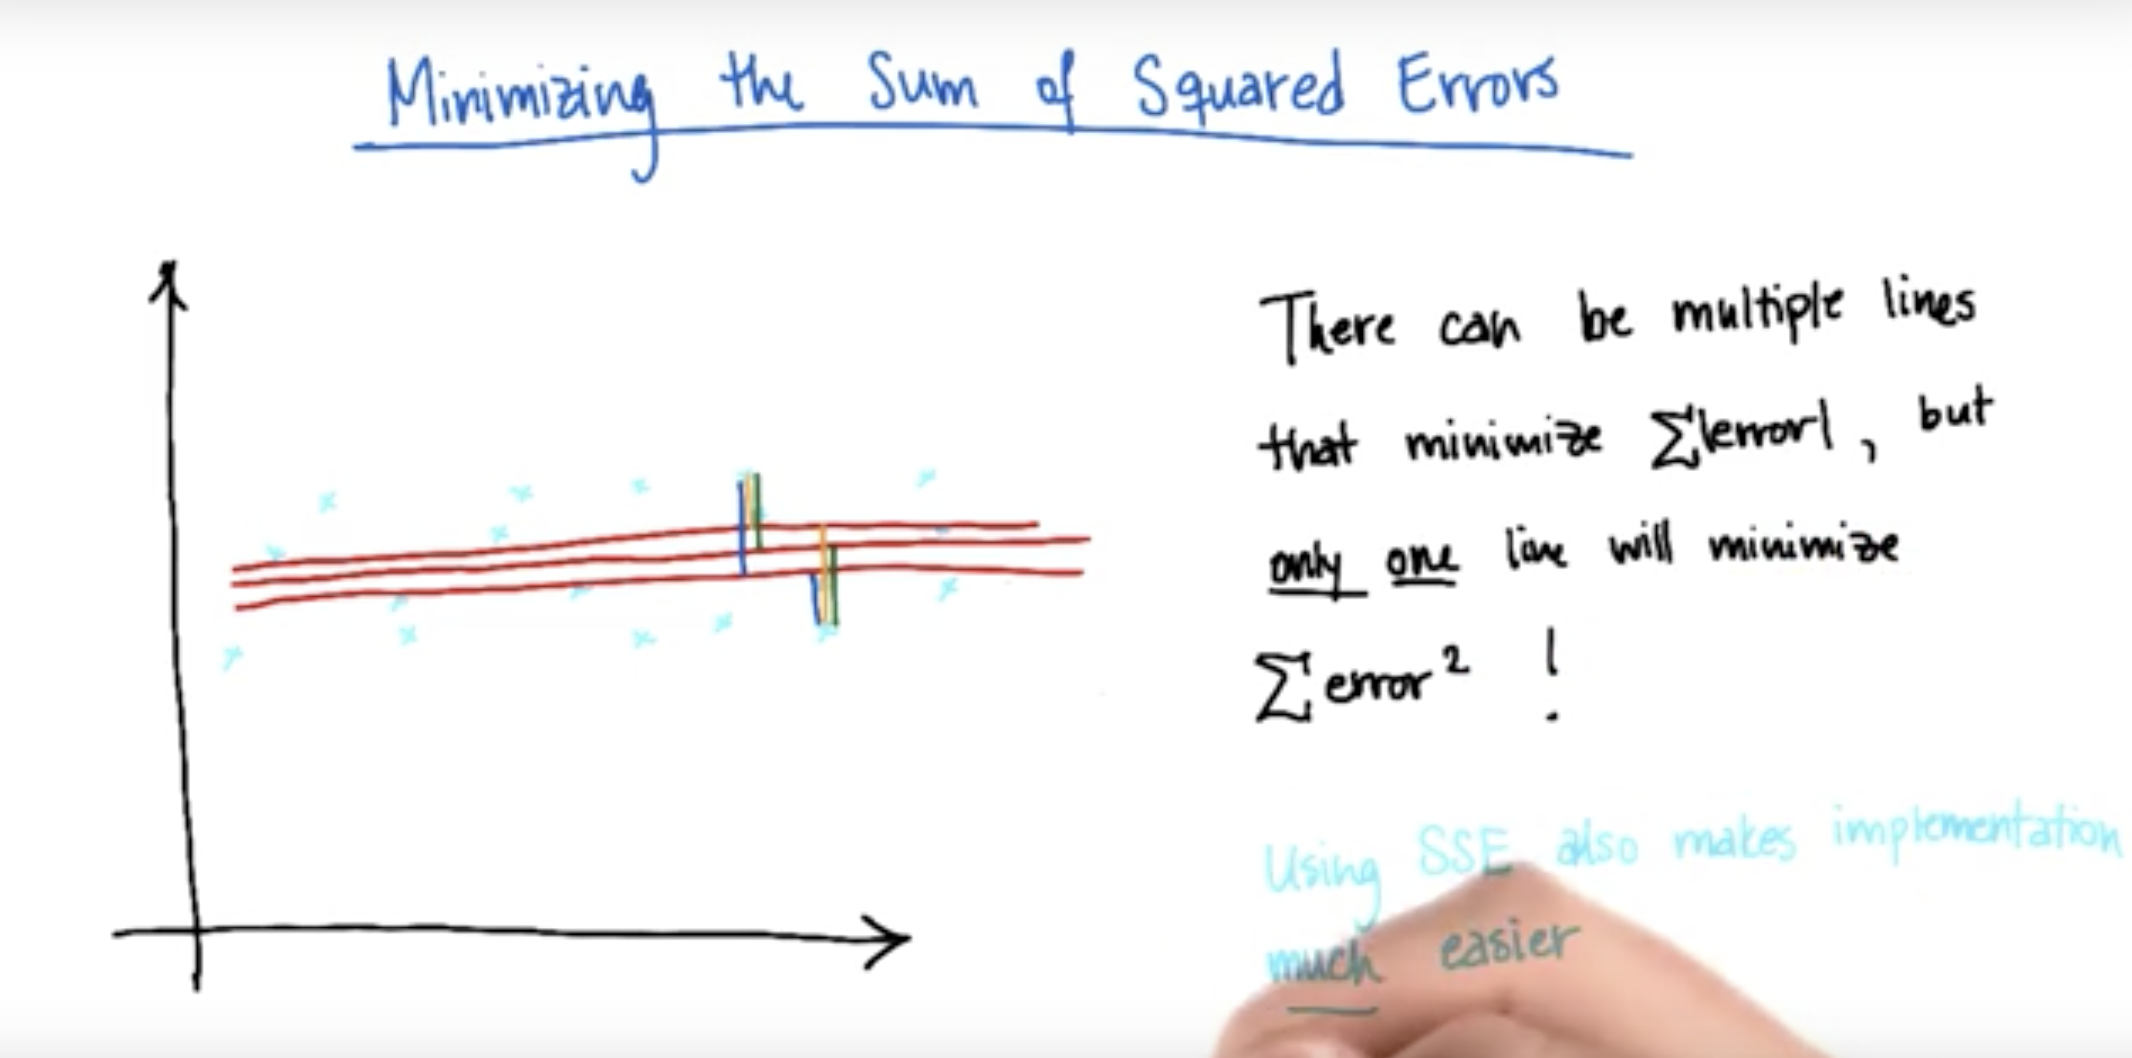 Minimizing the Sum of Squared Errors
There can be multiple lines
that minimize Σ|error|, but
only one line will minimize
Σ error² !
Using SSE also makes implementation
much easier